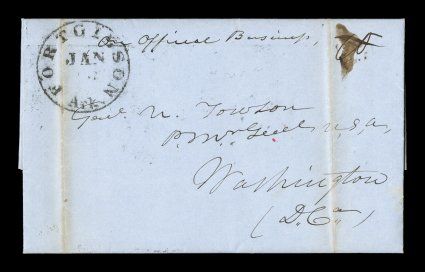 On Official Business,
FORT GIBSON
JAN
Ark
Genl. N. Towson
P. M. Genl. U.S.A.
Washington
(D. Ca)